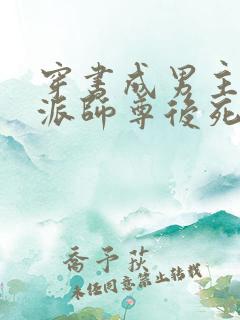 穿书成男主
派師尊後死
喬予荻
未经同意禁止转载